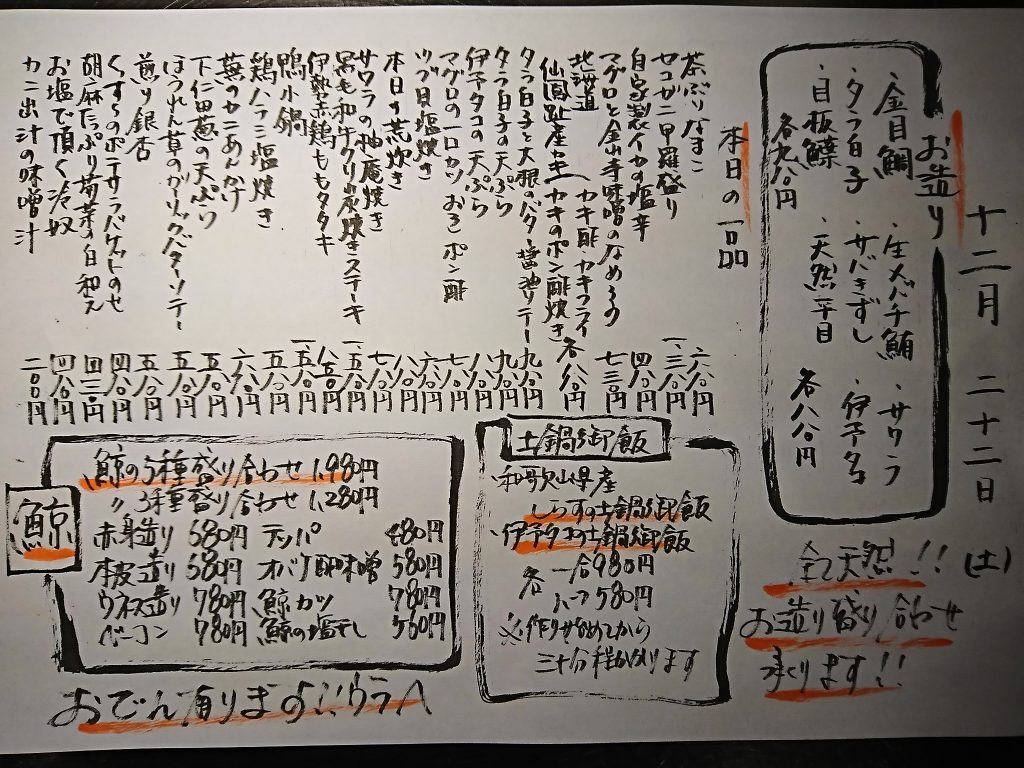 十二月 二十二日 (土)
お造り
・金目鯛 ・生メバチ鮪 ・サワラ
・タラ白子 ・サバきずし ・伊予ダコ
・目板鰈 ・天然平目
各九八〇円 各八八〇円
全て天然!!
お造り盛り合わせ
承ります!!
本日の一品
茶ぶりなまこ 六八〇円
セコガニ甲羅盛り 一、三八〇円
自家製イカの塩辛 四八〇円
マグロと金山寺味噌のなめろう 七三〇円
北海道
仙鳳趾産カキ カキ酢・カキフライ
カキのポン酢焼き 各八八〇円
タラ白子と大根のバター醤油ソテー 九八〇円
タラ白子の天ぷら 九八〇円
伊予ダコの天ぷら 七八〇円
マグロの一口カツ おろしポン酢 六八〇円
ツブ貝塩焼き 八八〇円
本日の煮炊き 七八〇円
サワラの柚庵焼き
黒毛和牛クリ炭焼きステーキ 一、五八〇円
伊勢赤鶏ももタタキ 八五〇円
鴨小鍋 一、五八〇円
鶏ハラミ塩焼き 五八〇円
蕪のカニあんかけ 六八〇円
下仁田葱の天ぷら 五八〇円
ほうれん草のガーリックバターソテー 五八〇円
煎り銀杏 五八〇円
くずしポテサラバケットのせ 四八〇円
胡麻たっぷり菊菜の白和え 四三〇円
お塩で頂く冷奴 四八〇円
カニ出汁の味噌汁 二〇〇円
土鍋御飯
・和歌山県産
しらすの土鍋御飯
・伊予ダコの土鍋御飯
各 一合980円
ハーフ580円
※作り始めてから
三十分程かかります
鯨
鯨の5種盛り合わせ 1,980円
〃 3種盛り合わせ 1,280円
赤身造り 680円 テッパ 480円
本皮造り 580円 オバケ酢味噌 580円
ウネス造り 780円 鯨カツ 780円
ベーコン 780円 鯨の塩干し 560円
おでん有ります!!ウラへ